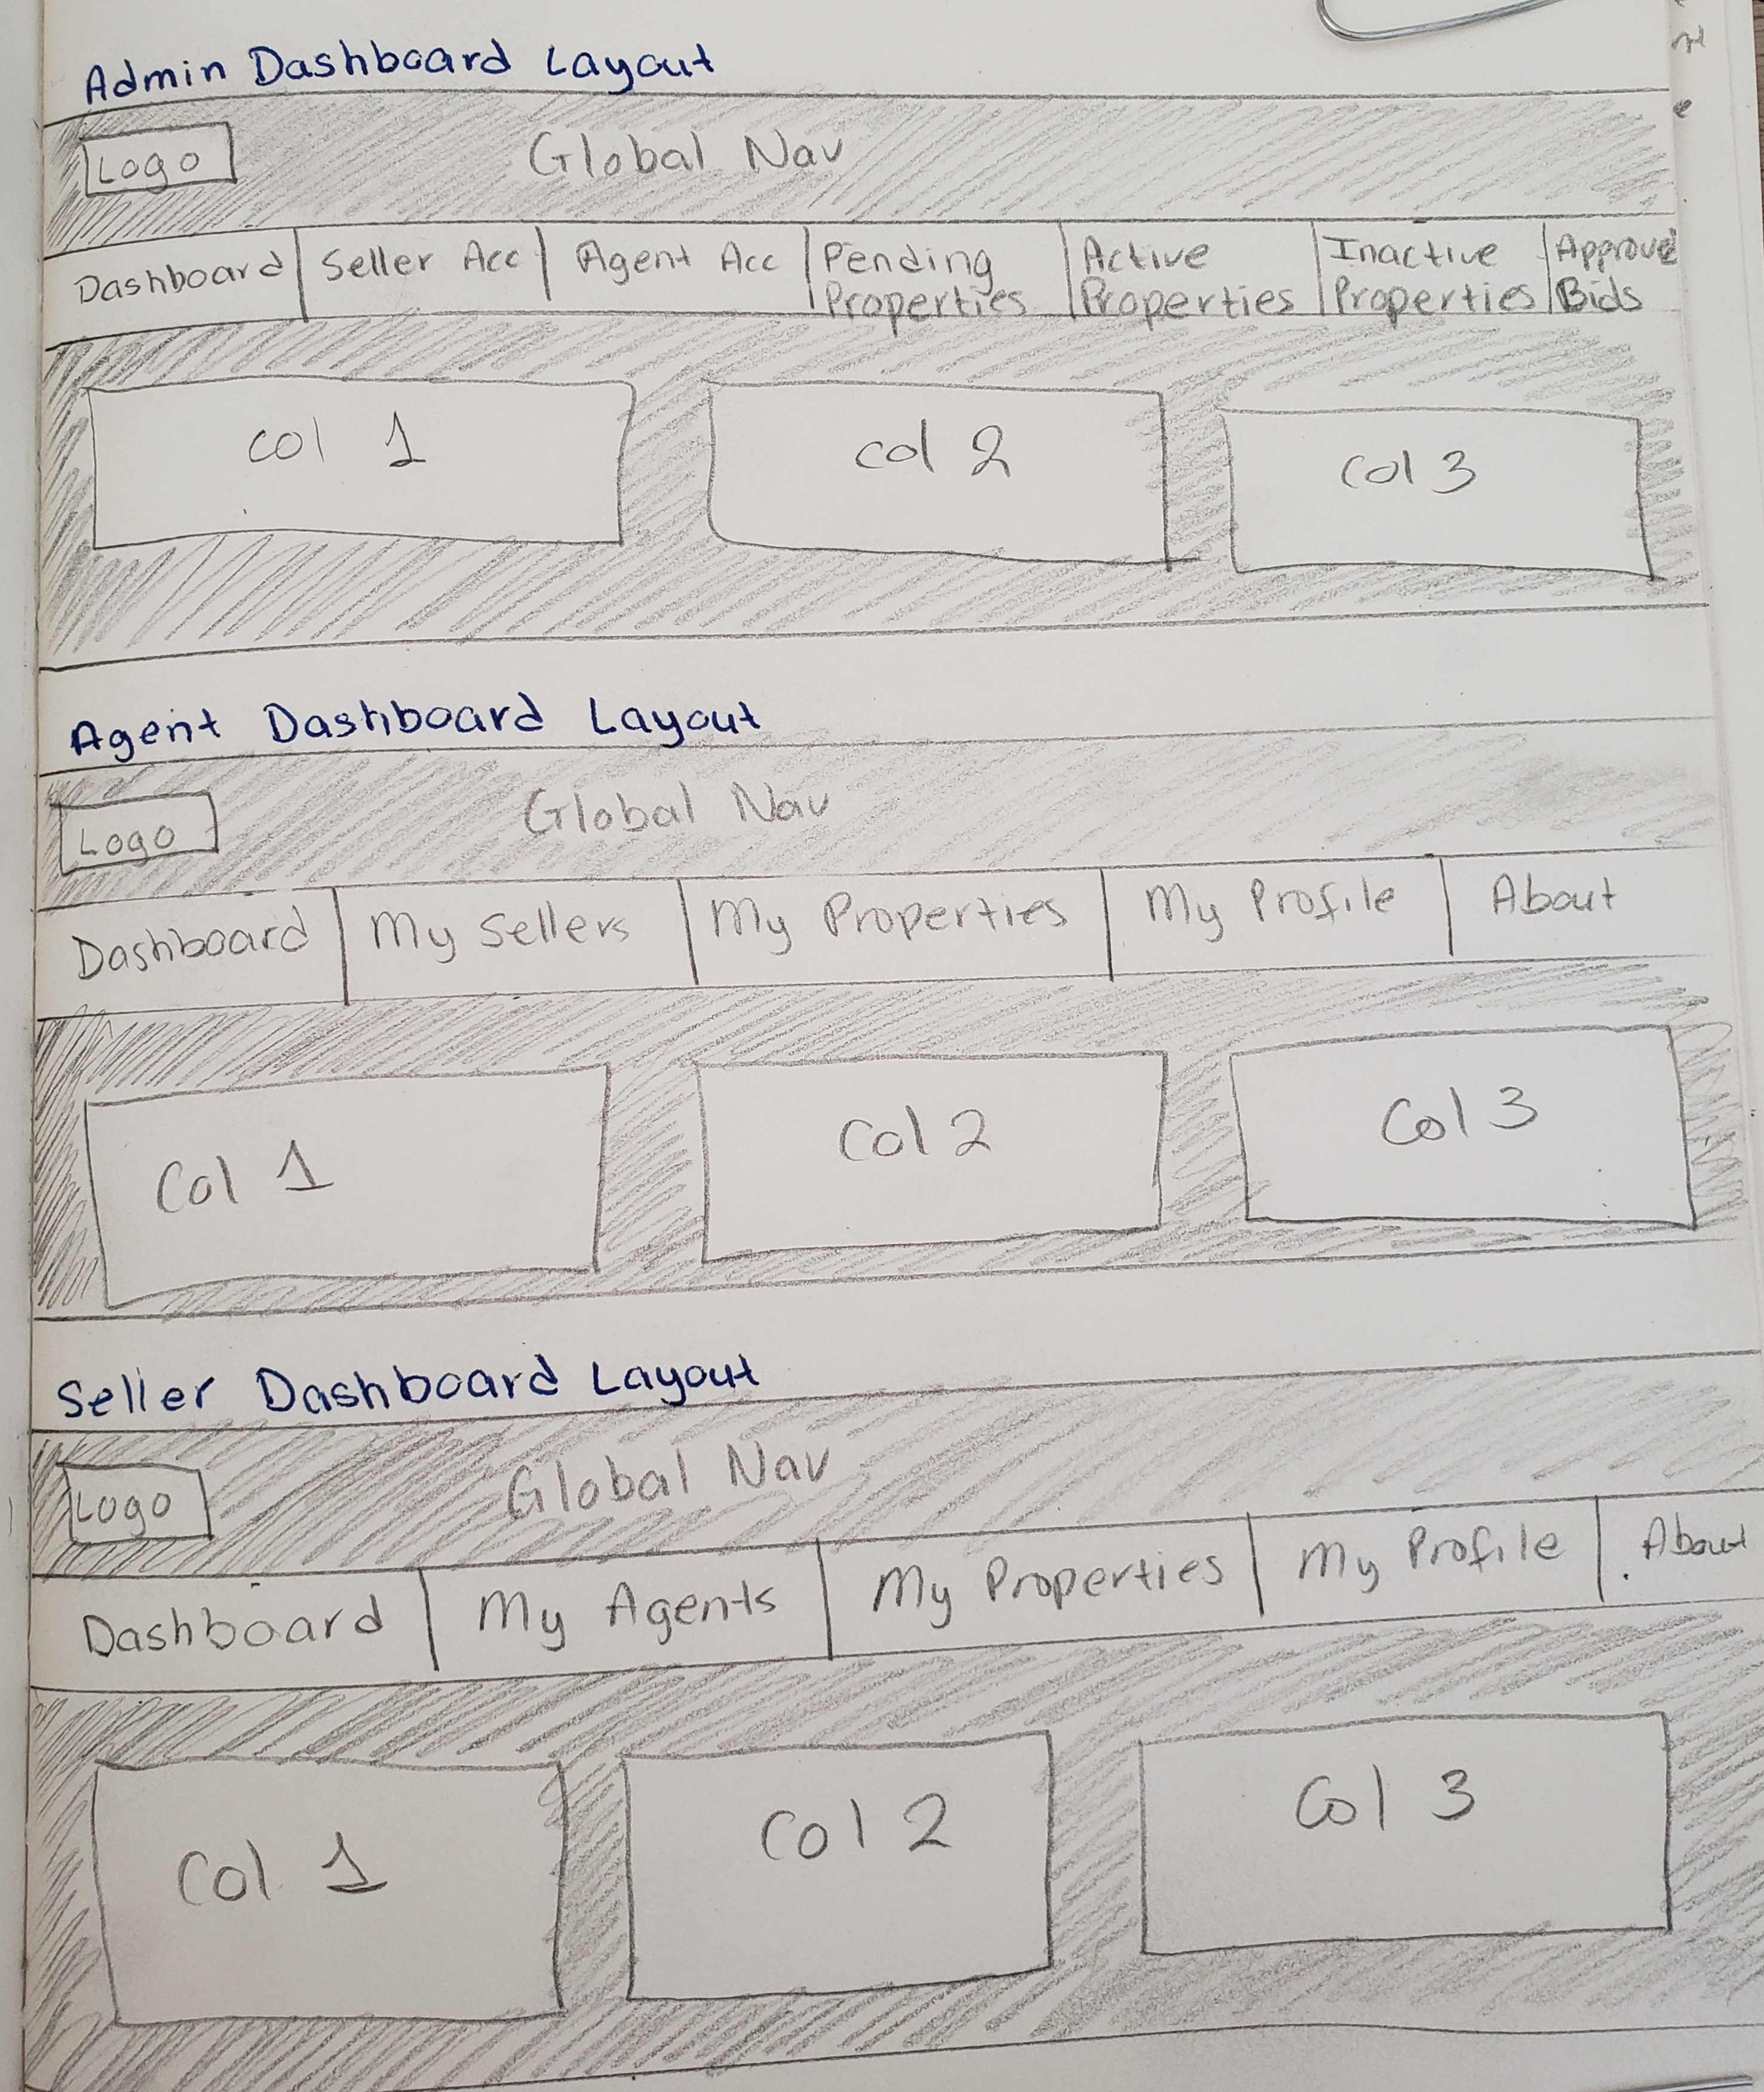 Admin Dashboard Layout
Logo
Global Nav
Dashboard
Seller Acc
Agent Acc
Pending
Properties
Active
Properties
Inactive
Properties
Approved
Bids
col 1
col 2
col 3
Agent Dashboard Layout
Logo
Global Nav
Dashboard
My Sellers
My Properties
My Profile
About
Col 1
Col 2
Col 3
Seller Dashboard Layout
Logo
Global Nav
Dashboard
My Agents
My Properties
My Profile
About
Col 1
Col 2
Col 3